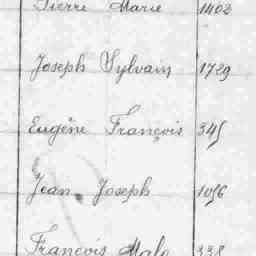 Pierre Marie 1402
Joseph Sylvain 1729
Eugène François 345
Jean Joseph 1056
François Malo 338